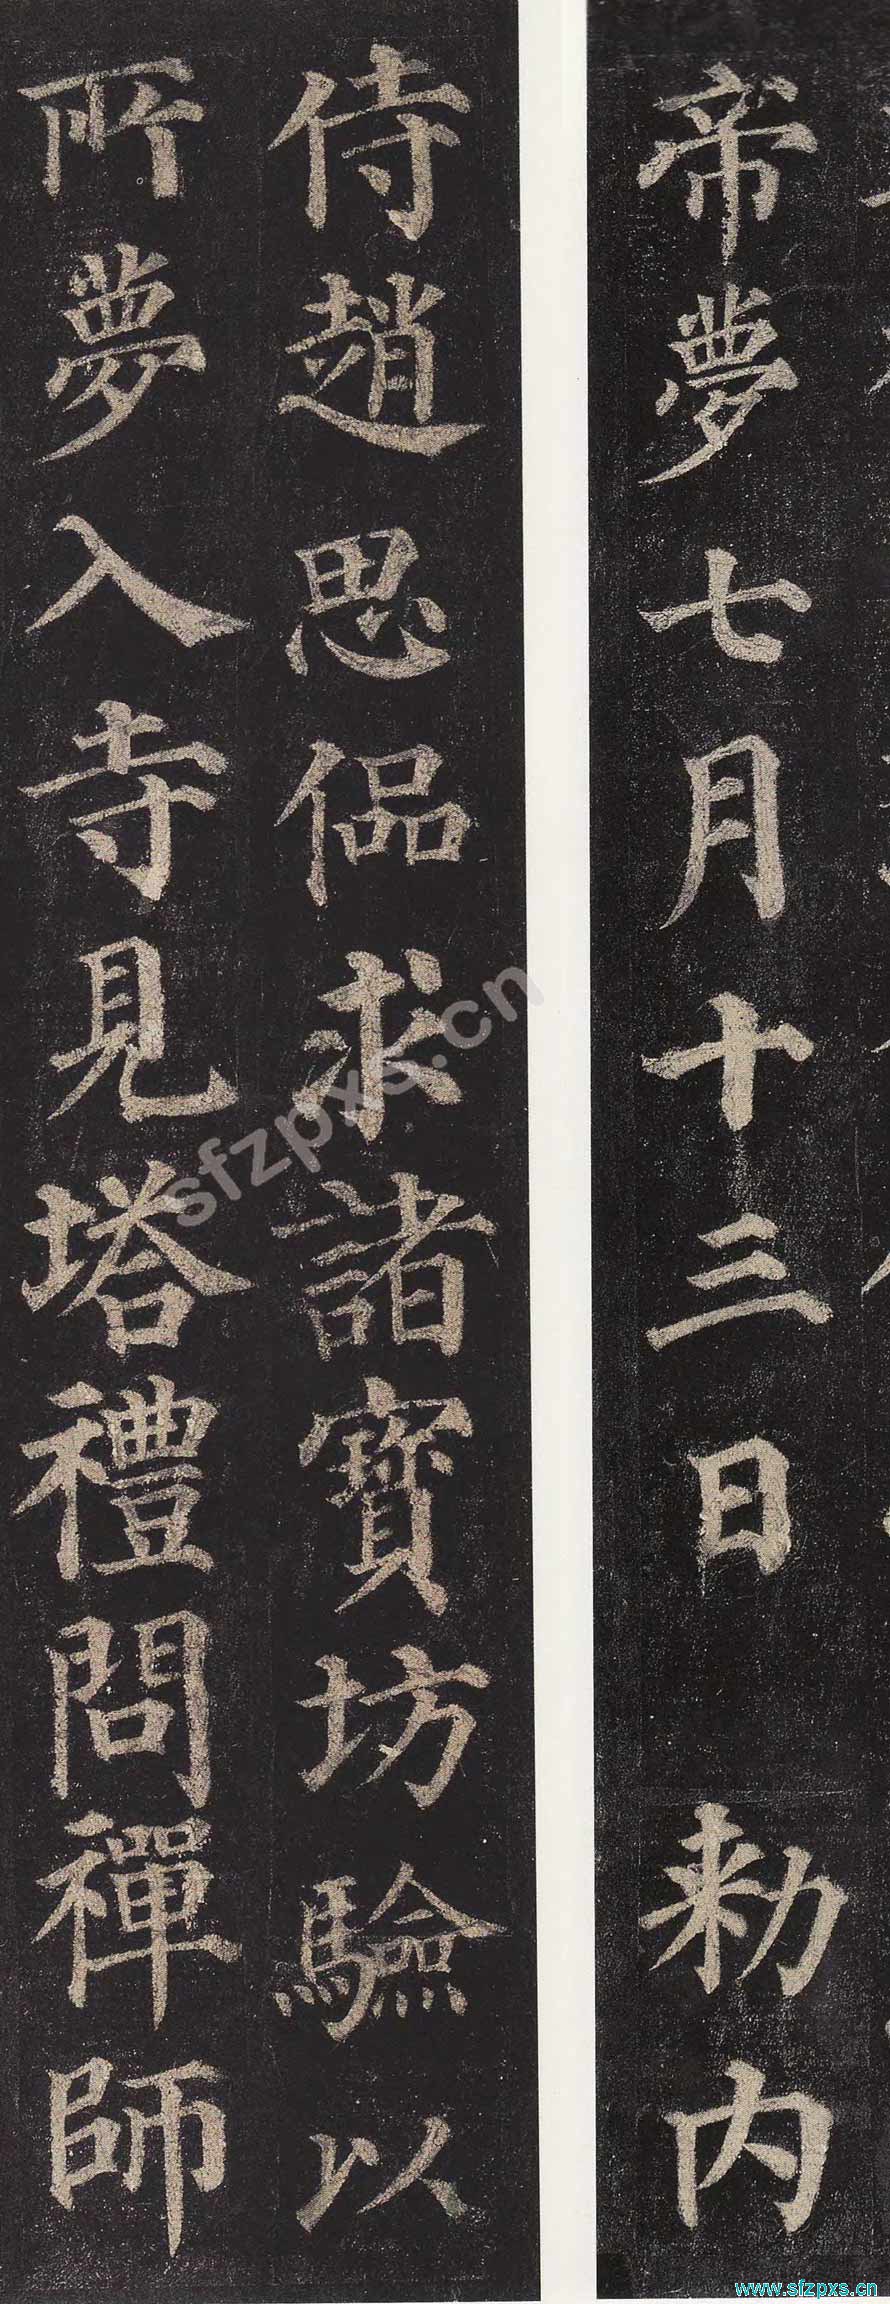 帝夢七月十三日　勅内
侍趙思侶求諸寶坊驗以
所夢入寺見塔禮問禪師
sfzpxs.cn
www.sfzpxs.cn